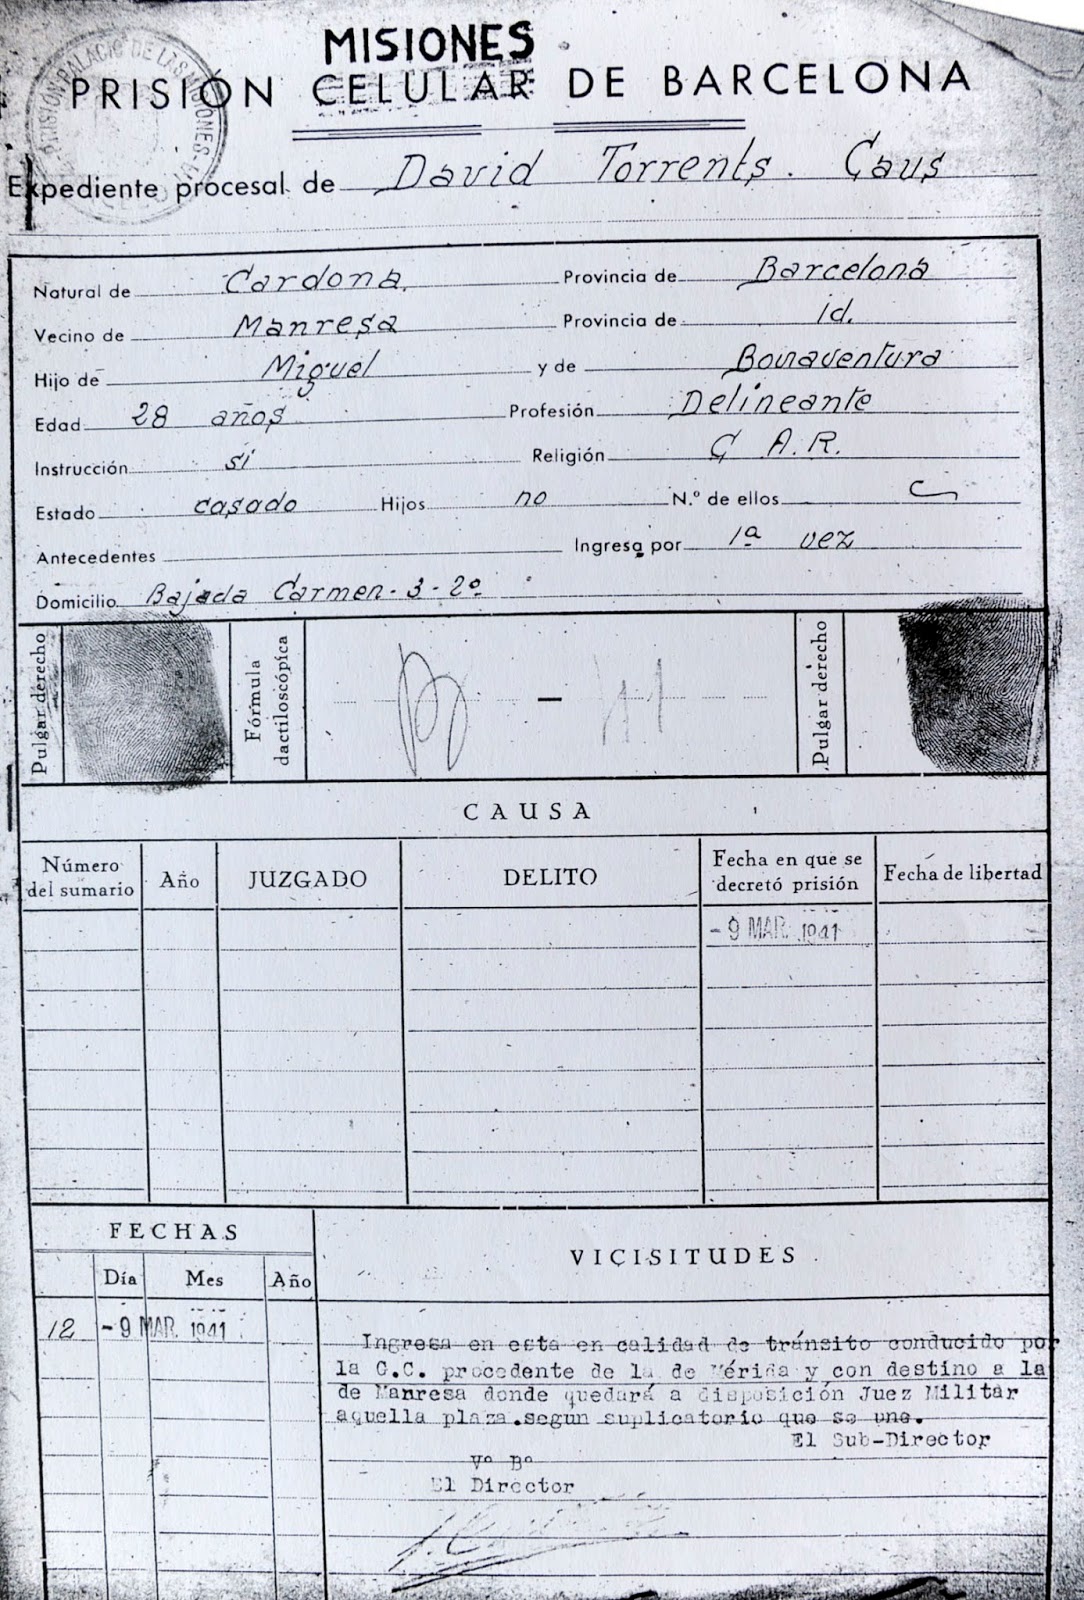 MISIONES
PRISIÓN CELULAR DE BARCELONA
PRISION PALACIO DE LAS MISIONES
Expediente procesal de David Torrents Caus
Natural de Cardona. Provincia de Barcelona
Vecino de Manresa Provincia de id.
Hijo de Miguel y de Bonaventura
Edad 28 años Profesión Delineante
Instrucción si Religión C A.R.
Estado casado Hijos no N.º de ellos
Antecedentes Ingresa por 1ª vez
Domicilio Bajada Carmen - 3 - 2º
Pulgar derecho Fórmula dactiloscópica - Pulgar derecho
CAUSA
Número del sumario Año JUZGADO DELITO Fecha en que se decretó prisión Fecha de libertad
- 9 MAR. 1941
FECHAS VICISITUDES
Día Mes Año
12 - 9 MAR. 1941
Ingresa en esta en calidad de tránsito conducido por
la G.C. procedente de la de Mérida y con destino a la
de Manresa donde quedará a disposición Juez Militar
aquella plaza.segun suplicatorio que se une.
El Sub-Director
Vº Bº
El Director